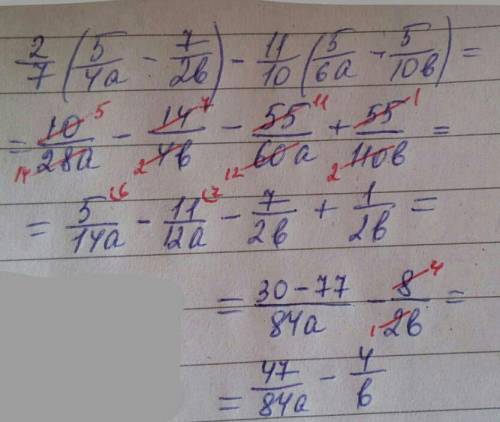 2/7 (5/4a - 7/2b) - 11/10 (5/6a - 5/10b) =
= 10/28a - 14/4b - 55/60a + 55/110b =
= 5/14a - 11/12a - 7/2b + 1/2b =
= 30 - 77/84a - 8/2b =
= 47/84a - 4/b